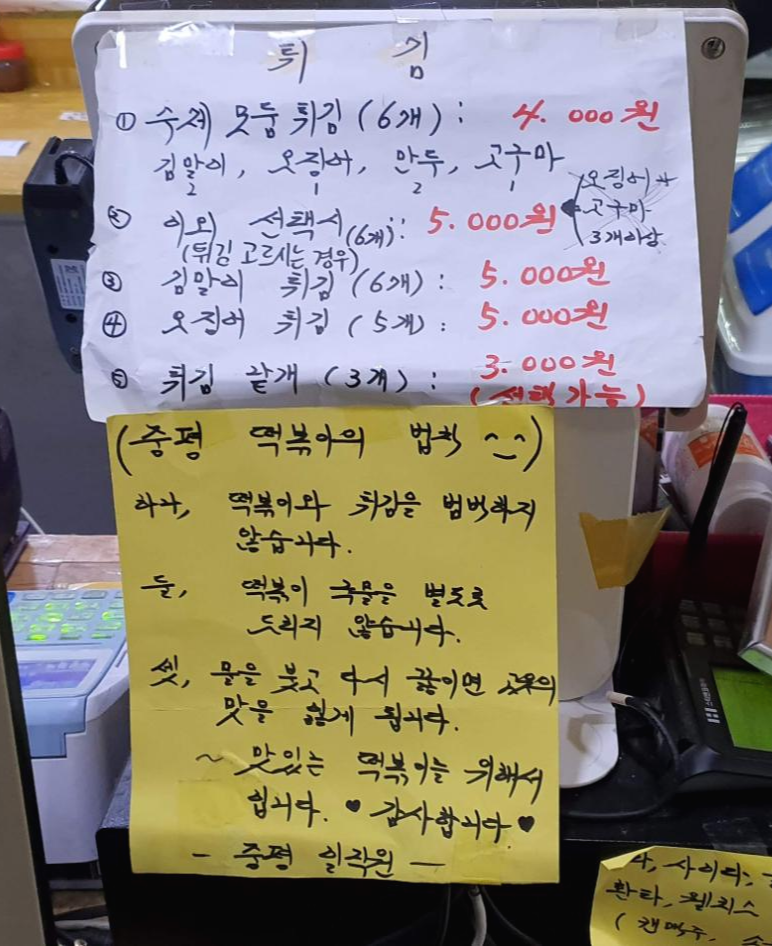 튀 김
① 수제 모둠 튀김 (6개) : 4.000원
김말이, 오징어, 만두, 고구마
2 1 2 1
② 이외 선택시 (6개) : 5.000원
(튀김 고르시는 경우)
오징어
고구마
3개이상
③ 김말이 튀김 (6개) : 5.000원
④ 오징어 튀김 (5개) : 5.000원
⑤ 튀김 낱개 (3개) : 3.000원
(선택가능)
(중평 떡볶이의 법칙 ^_^)
하나, 떡볶이와 튀김을 범벅하지
않습니다.
둘, 떡볶이 국물을 별도로
드리지 않습니다.
셋, 물을 붓고 다시 끓이면
맛을 잃게 됩니다.
~ 맛있는 떡볶이를 위해서
입니다. ♥ 감사합니다 ♥
- 중평 일직원 -
사이다,
환타, 웰치스
(캔맥주,